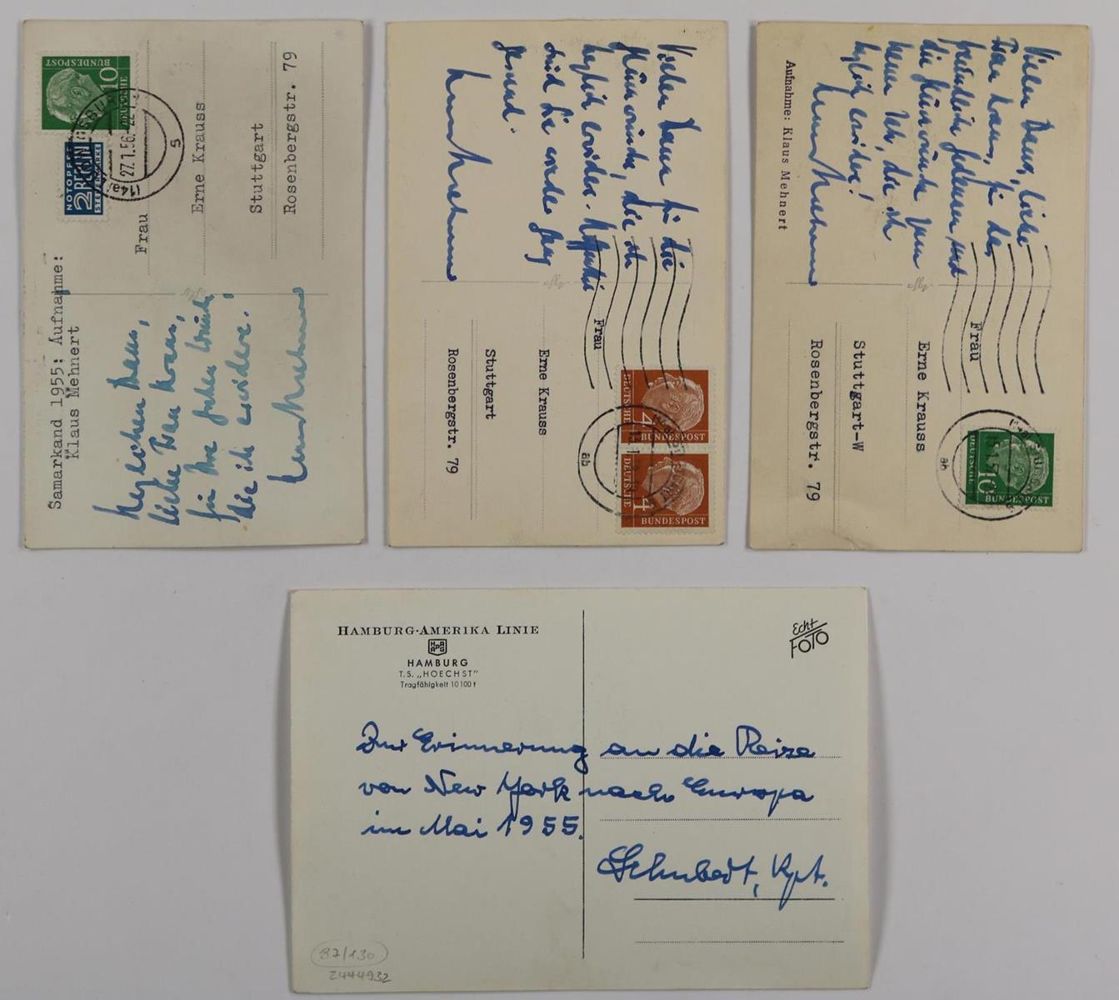 Samarkand 1955: Aufnahme:
Klaus Mehnert
Herzlichen Dank,
liebe Frau Krauss,
für Ihre
die ich erwidere!
Klaus Mehnert
BUNDESPOST
DEUTSCHE
10
NOTOPFER
2 BERLIN
STEUERMARKE
(14a)
27.1.56
s
Frau
Erne Krauss
Stuttgart
Rosenbergstr. 79
Vielen Dank für die
Glückwünsche, die ich
herzlich erwidere. Hoffentlich
sind Sie wieder ganz
gesund.
Klaus Mehnert
Frau
Erne Krauss
Stuttgart
Rosenbergstr. 79
DEUTSCHE
4
BUNDESPOST
DEUTSCHE
4
BUNDESPOST
ab
Aufnahme: Klaus Mehnert
Vielen Dank, liebe
Frau Krauss, für das
freundliche Gedenken und
die Glückwünsche zum
neuen Jahr, die ich
herzlich erwidere!
Klaus Mehnert
Frau
Erne Krauss
Stuttgart-W
Rosenbergstr. 79
DEUTSCHE
10
BUNDESPOST
ab
HAMBURG-AMERIKA LINIE
HAMBURG
T.S. „HOECHST"
Tragfähigkeit 10100 t
Echt
FOTO
Zur Erinnerung an die Reise
von New York nach Europa
im Mai 1955.
Schubedt, Kpt.
87/130
2444932